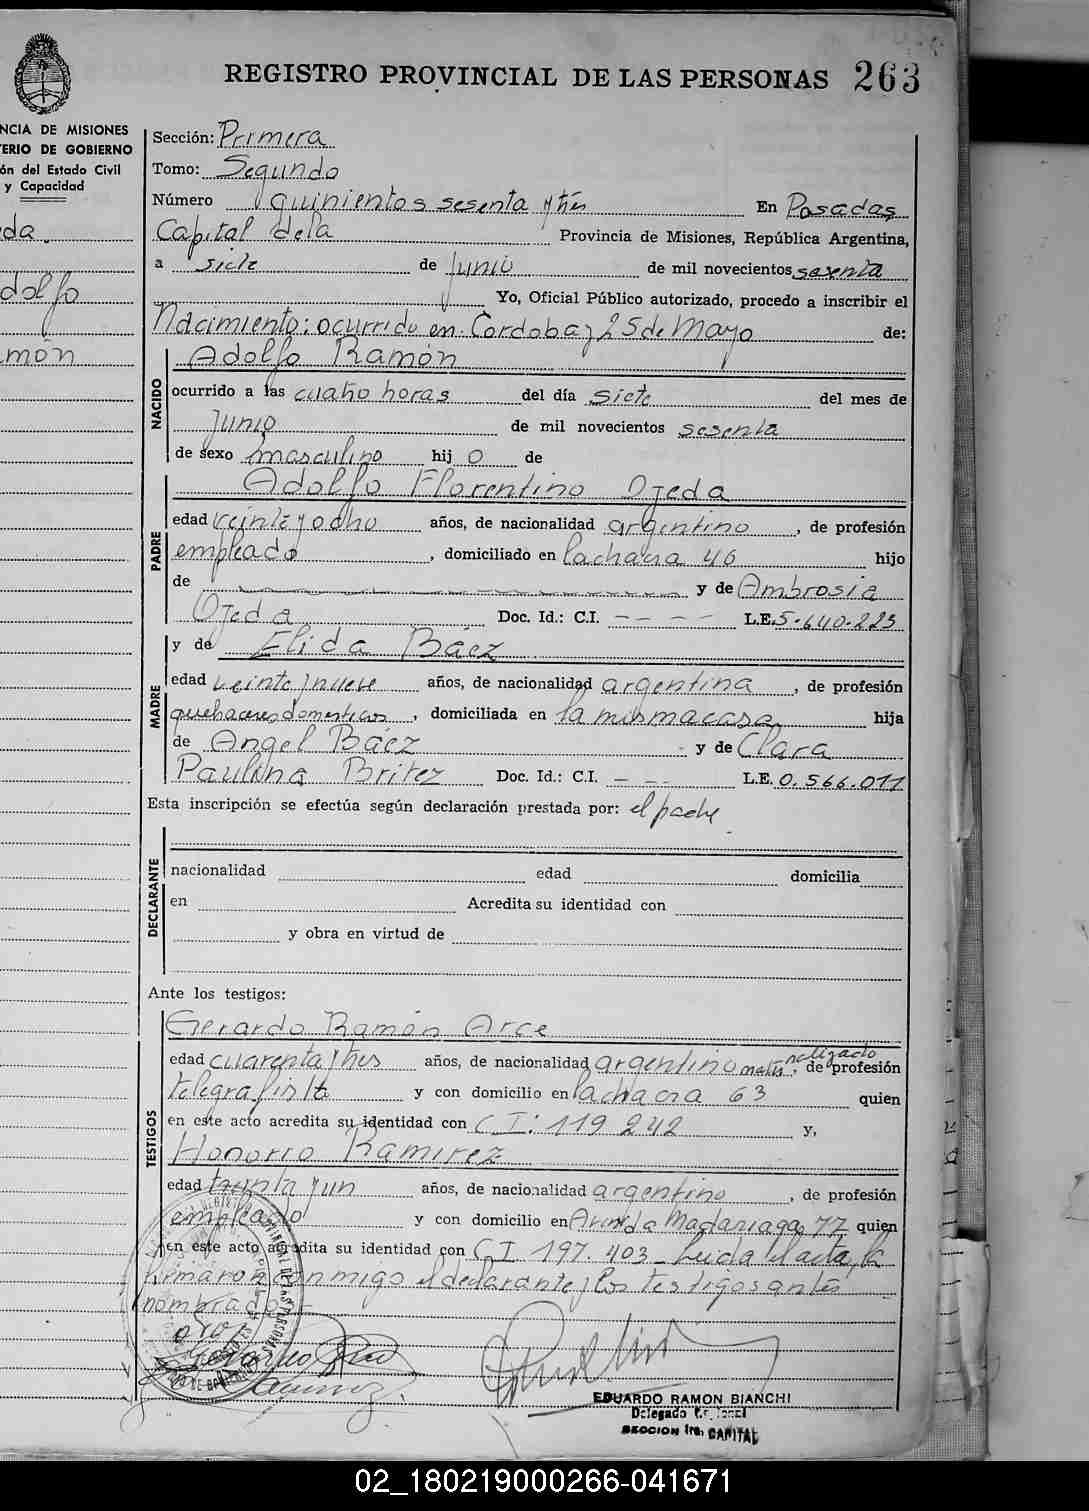 REGISTRO PROVINCIAL DE LAS PERSONAS 263
NCIA DE MISIONES
ERIO DE GOBIERNO
ón del Estado Civil
y Capacidad
da.
dolfo
món
Sección: Primera
Tomo: Segundo
Número quinientos sesenta y tres En Posadas,
Capital dela Provincia de Misiones, República Argentina,
a siete de Junio de mil novecientos sesenta
Yo, Oficial Público autorizado, procedo a inscribir el
Nacimiento: ocurrido en Córdoba y 25 de Mayo de:
NACIDO
Adolfo Ramón
ocurrido a las cuatro horas del día siete del mes de
Junio de mil novecientos sesenta
de sexo masculino hij o de
PADRE
Adolfo Florentino Ojeda
edad veinte y ocho años, de nacionalidad argentino, de profesión
empleado, domiciliado en la chacra 46 hijo
de y de Ambrosia
Ojeda Doc. Id.: C.I. - - - - L.E. 5.640.223
y de Elida Báez
MADRE
edad veinte y nueve años, de nacionalidad argentina, de profesión
quehaceres domesticos, domiciliada en la misma casa hija
de Angel Báez y de Clara
Paulina Britez Doc. Id.: C.I. - - - L.E. 0.566.011
Esta inscripción se efectúa según declaración prestada por: el padre
DECLARANTE
nacionalidad edad domicilia
en Acredita su identidad con
y obra en virtud de
Ante los testigos:
TESTIGOS
Gerardo Ramón Arce
edad cuarenta y tres años, de nacionalidad argentino nalizado, de profesión
telegrafista y con domicilio en la chacra 63 quien
en este acto acredita su identidad con C I: 119 242 y,
Honorio Ramirez
edad treinta y un años, de nacionalidad argentino, de profesión
empleado y con domicilio en Avenida Madariaga 77 quien
en este acto acredita su identidad con C I 197.403 Leida el acta, la
firmaron conmigo el declarante y los testigos antes
nombrados
EDUARDO RAMON BIANCHI
Delegado
SECCION 1ra. CAPITAL
02_180219000266-041671